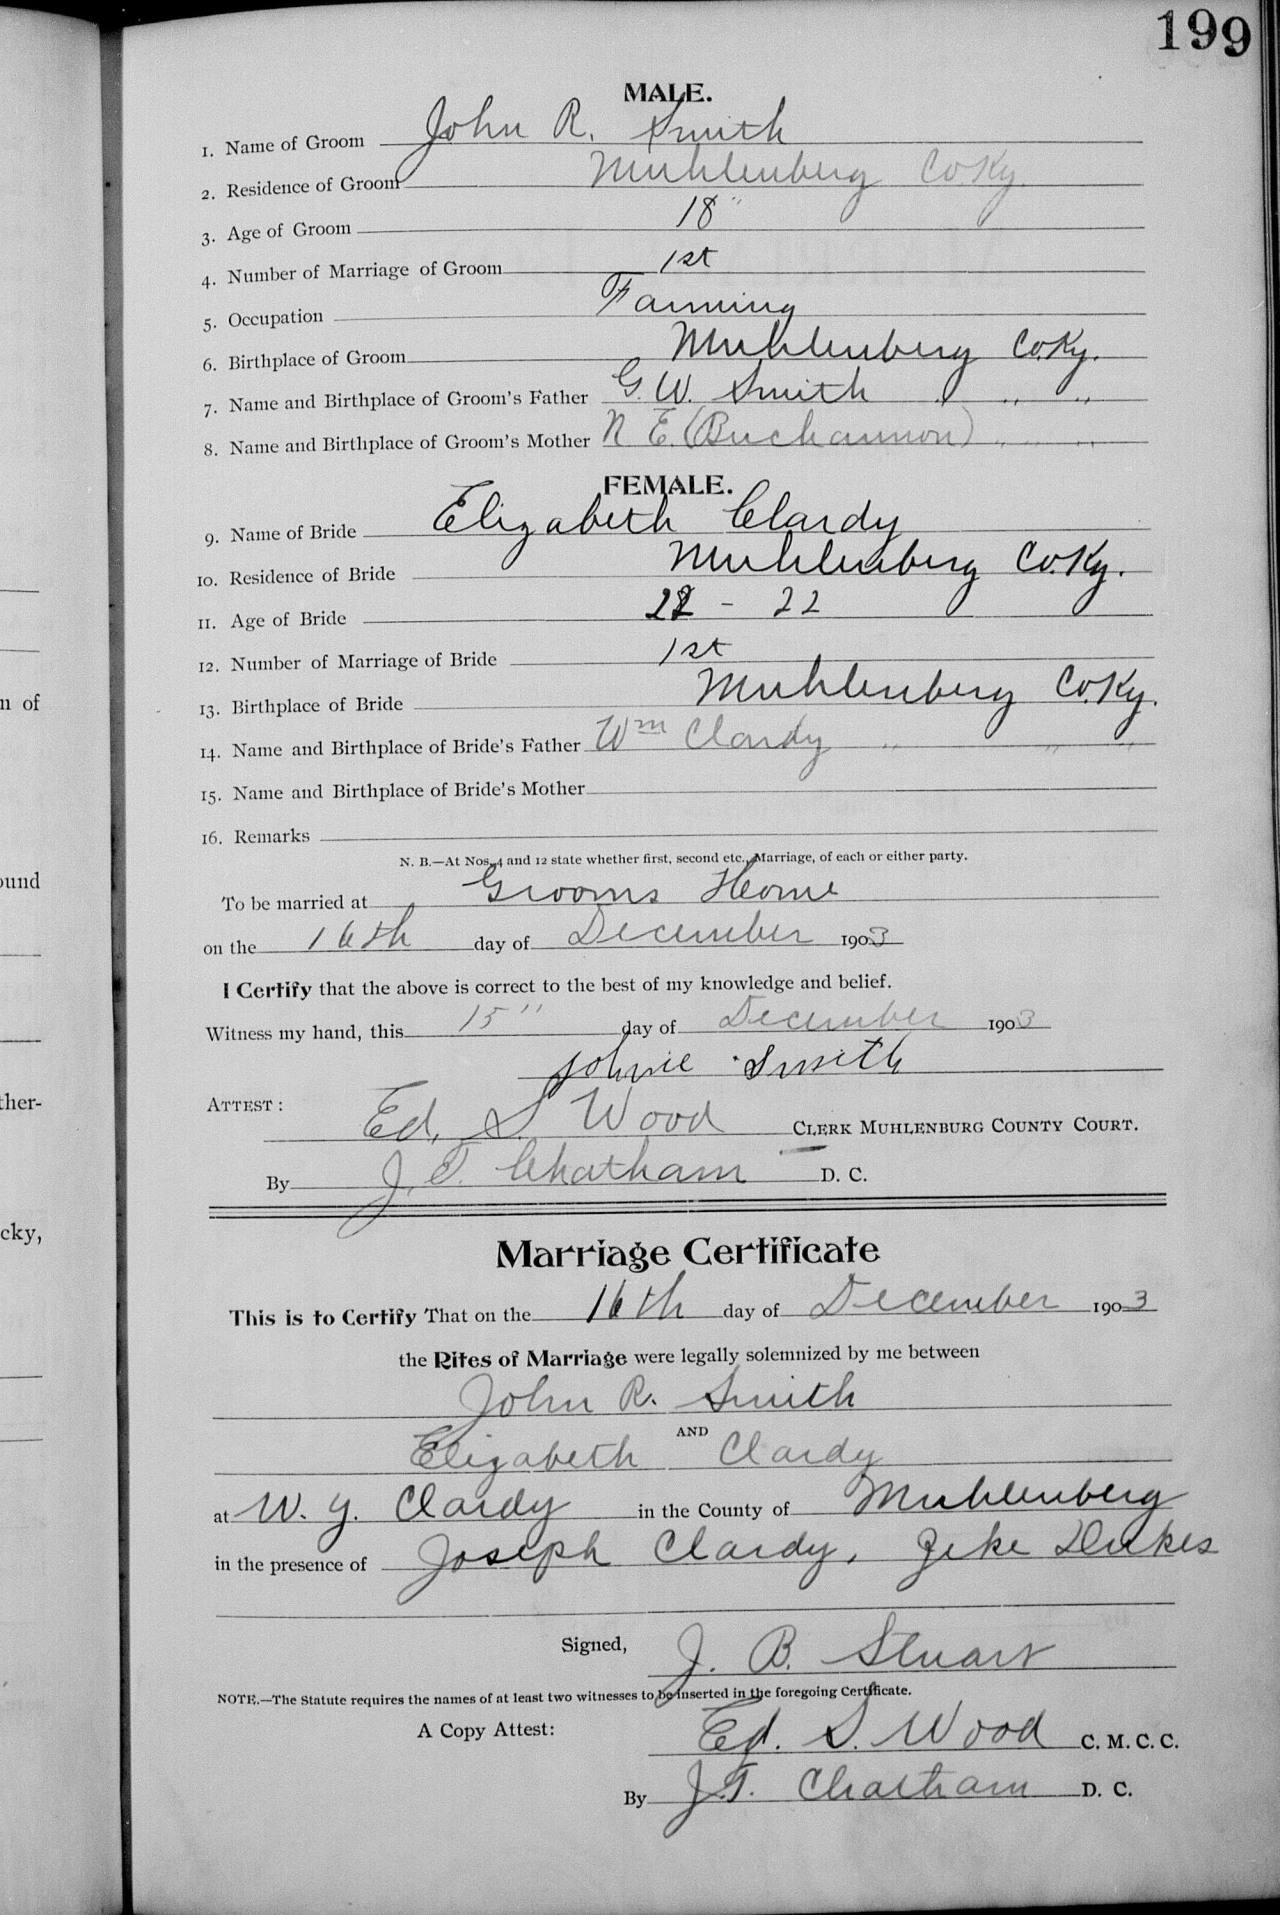 199
MALE.
1. Name of Groom John R. Smith
2. Residence of Groom Muhlenberg Co Ky.
3. Age of Groom 18"
4. Number of Marriage of Groom 1st
5. Occupation Farming
6. Birthplace of Groom Muhlenberg Co. Ky.
7. Name and Birthplace of Groom's Father G. W. Smith " " "
8. Name and Birthplace of Groom's Mother N E. (Buchannon) " " "
FEMALE.
9. Name of Bride Elizabeth Clardy
10. Residence of Bride Muhlenberg Co. Ky.
11. Age of Bride 22 - 22
12. Number of Marriage of Bride 1st
13. Birthplace of Bride Muhlenberg Co. Ky.
14. Name and Birthplace of Bride's Father Wm Clardy " " "
15. Name and Birthplace of Bride's Mother
16. Remarks
N. B.—At Nos. 4 and 12 state whether first, second etc., Marriage, of each or either party.
To be married at Grooms Home
on the 16th day of December 1903
I Certify that the above is correct to the best of my knowledge and belief.
Witness my hand, this 15" day of December 1903
Johnie Smith
ATTEST:
Ed. S. Wood CLERK MUHLENBURG COUNTY COURT.
By J. T. Chatham D. C.
Marriage Certificate
This is to Certify That on the 16th day of December 1903
the Rites of Marriage were legally solemnized by me between
John R. Smith
AND
Elizabeth Clardy
at W. Y. Clardy in the County of Muhlenberg
in the presence of Joseph Clardy, Zeke Dukes
Signed, J. B. Stuart
NOTE.—The Statute requires the names of at least two witnesses to be inserted in the foregoing Certificate.
A Copy Attest: Ed. S. Wood C. M. C. C.
By J. T. Chatham D. C.
n of
ound
ther-
cky,